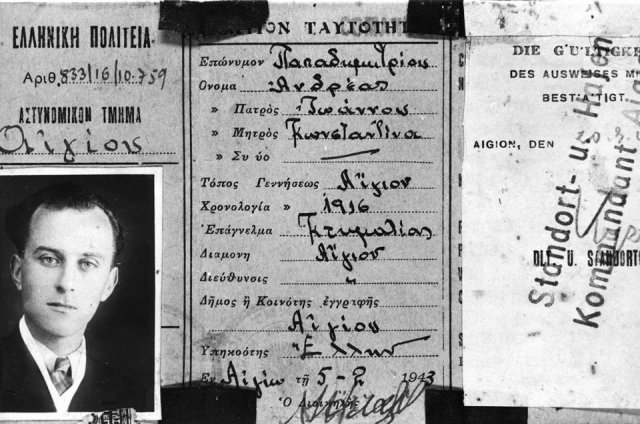 ΕΛΛΗΝΙΚΗ ΠΟΛΙΤΕΙΑ
Αριθ. 833/16/10.759
ΑΣΤΥΝΟΜΙΚΟΝ ΤΜΗΜΑ
Αἰγίου
ΤΑΥΤΟΤΗΤ
Επώνυμον Παπαδημητρίου
Ονομα Ἀνδρέας
» Πατρός Ἰωάννου
» Μητρός Κωνσταντίνα
» Συ ύο
Τόπος Γεννήσεως Αἴγιον
Χρονολογία » 1916
Ἐπάγνελμα Κτηματίας
Διαμονη Αἴγιον
Διεύθυνσις "
Δῆμος ἢ Κοινότης ἐγγραφῆς
Αἰγίου
Υπηκοότης Ἕλλην
Εν Αἰγίῳ τῇ 5-2 1943
Ὁ Διοικητὴς
DIE GÜLTIGKE
DES AUSWEISES
BESTÄTIGT
AIGION, DEN
Standort- u. Hafen
Kommandant
D. U. STANDORT